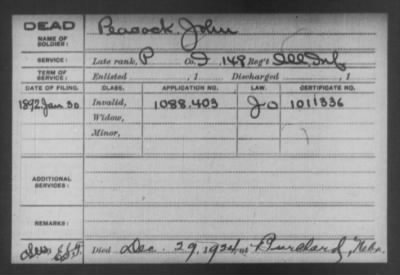 DEAD
NAME OF SOLDIER: Peacock, John
SERVICE: Late rank, P Co. I, 148 Reg't Ill Inf
TERM OF SERVICE: Enlisted , 1 Discharged , 1
DATE OF FILING. CLASS. APPLICATION NO. LAW. CERTIFICATE NO.
1892 Jan. 30 Invalid, 1088.403 1011336
Widow,
Minor,
ADDITIONAL SERVICES:
REMARKS:
Died Dec. 29, 1924, at Burchard, Nebr.